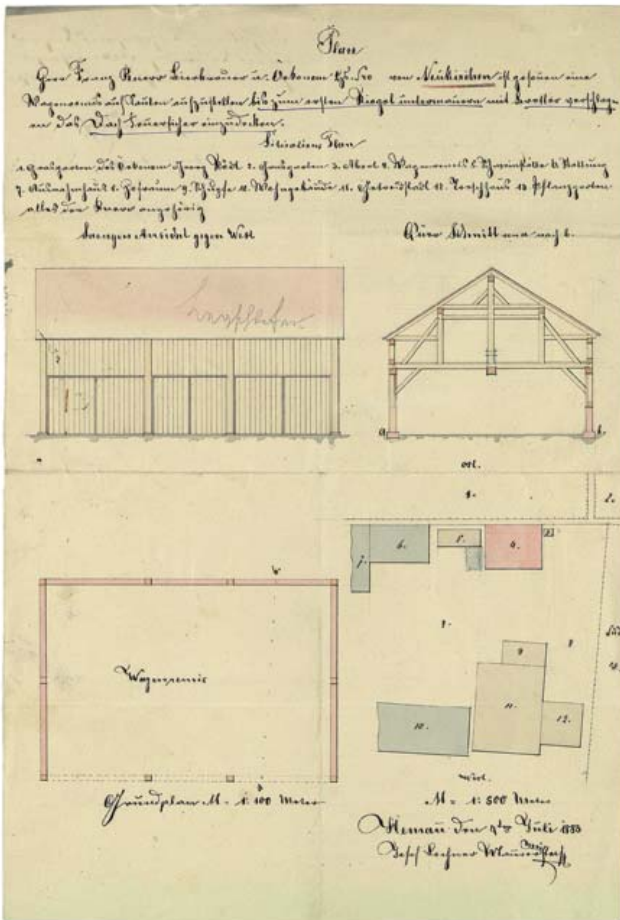 Plan
Herr Franz Knerr Bierbrauer u. Oekonom von Neukirchen ist gesonnen eine
Wagenremis auf Säulen aufzustellen bis zum ersten Riegel untermauern mit Bretter verschlagen
das Dach Feuersicher einzudecken.
Situations Plan
1. Grasgarten des Oekonom 2. Grasgarten 3. 4. Wagenremis 5. Schweinställe 6. Stallung
7. Ausnahmhaus 8. Hofraum 9. Schupfe 10. Wohngebäude 11. Getreidstadl 12. 13
alles dem Knerr angehörig
Laengen Ansicht gegen West
Quer Schnitt von a nach b.
a
b.
ost.
1.
2.
7.
6.
5.
4.
Wagenremis
8.
9
11.
12.
10.
west.
Grundplan M = 1: 100 Meter
M = 1: 500 Meter
Hemau den Juli 1883
Josef Lechner Maurermeister